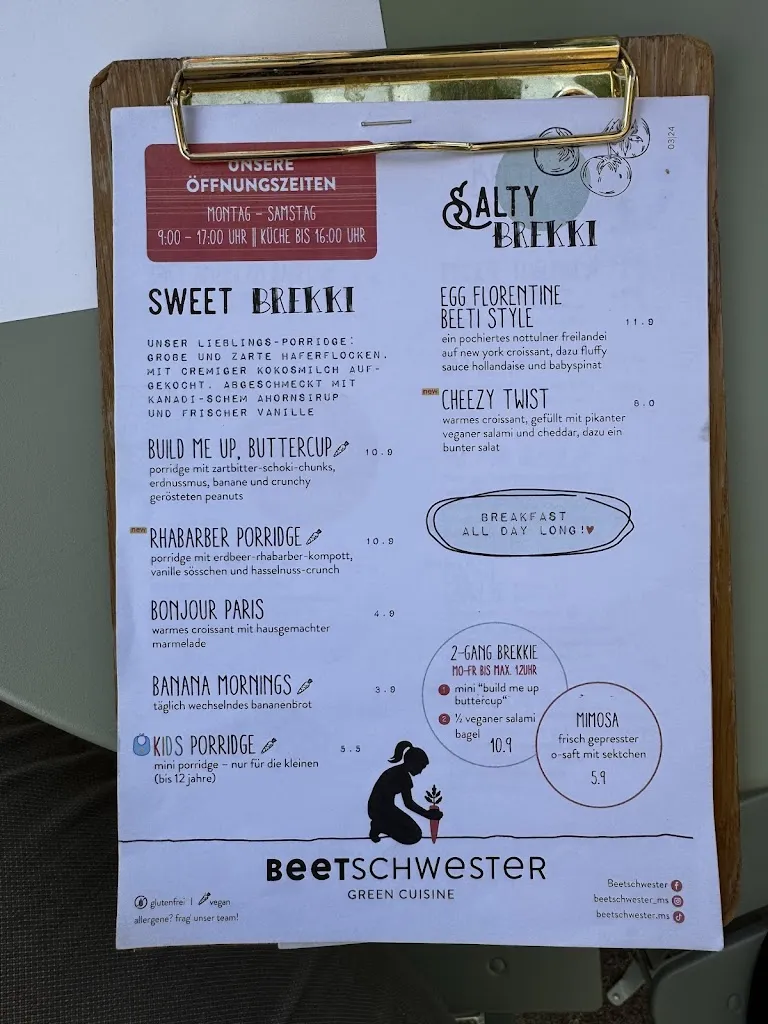 03|24
UNSERE
ÖFFNUNGSZEITEN
MONTAG – SAMSTAG
9:00 – 17:00 UHR || KÜCHE BIS 16:00 UHR
SWEET BREKKI
UNSER LIEBLINGS-PORRIDGE:
GROBE UND ZARTE HAFERFLOCKEN,
MIT CREMIGER KOKOSMILCH AUF-
GEKOCHT. ABGESCHMECKT MIT
KANADI-SCHEM AHORNSIRUP
UND FRISCHER VANILLE
BUILD ME UP, BUTTERCUP 10.9
porridge mit zartbitter-schoki-chunks,
erdnussmus, banane und crunchy
gerösteten peanuts
new RHABARBER PORRIDGE 10.9
porridge mit erdbeer-rhabarber-kompott,
vanille sösschen und hasselnuss-crunch
BONJOUR PARIS 4.9
warmes croissant mit hausgemachter
marmelade
BANANA MORNINGS 3.9
täglich wechselndes bananenbrot
KIDS PORRIDGE 5.5
mini porridge – nur für die kleinen
(bis 12 jahre)
SALTY
BREKKI
EGG FLORENTINE
BEETI STYLE 11.9
ein pochiertes nottulner freilandei
auf new york croissant, dazu fluffy
sauce hollandaise und babyspinat
new CHEEZY TWIST 8.0
warmes croissant, gefüllt mit pikanter
veganer salami und cheddar, dazu ein
bunter salat
BREAKFAST
ALL DAY LONG!♥
2-GANG BREKKIE
MO-FR BIS MAX. 12UHR
1 mini "build me up
buttercup"
2 ½ veganer salami
bagel 10.9
MIMOSA
frisch gepresster
o-saft mit sektchen
5.9
BEETSCHWESTER
GREEN CUISINE
glutenfrei | vegan
allergene? frag unser team!
Beetschwester
beetschwester_ms
beetschwester.ms